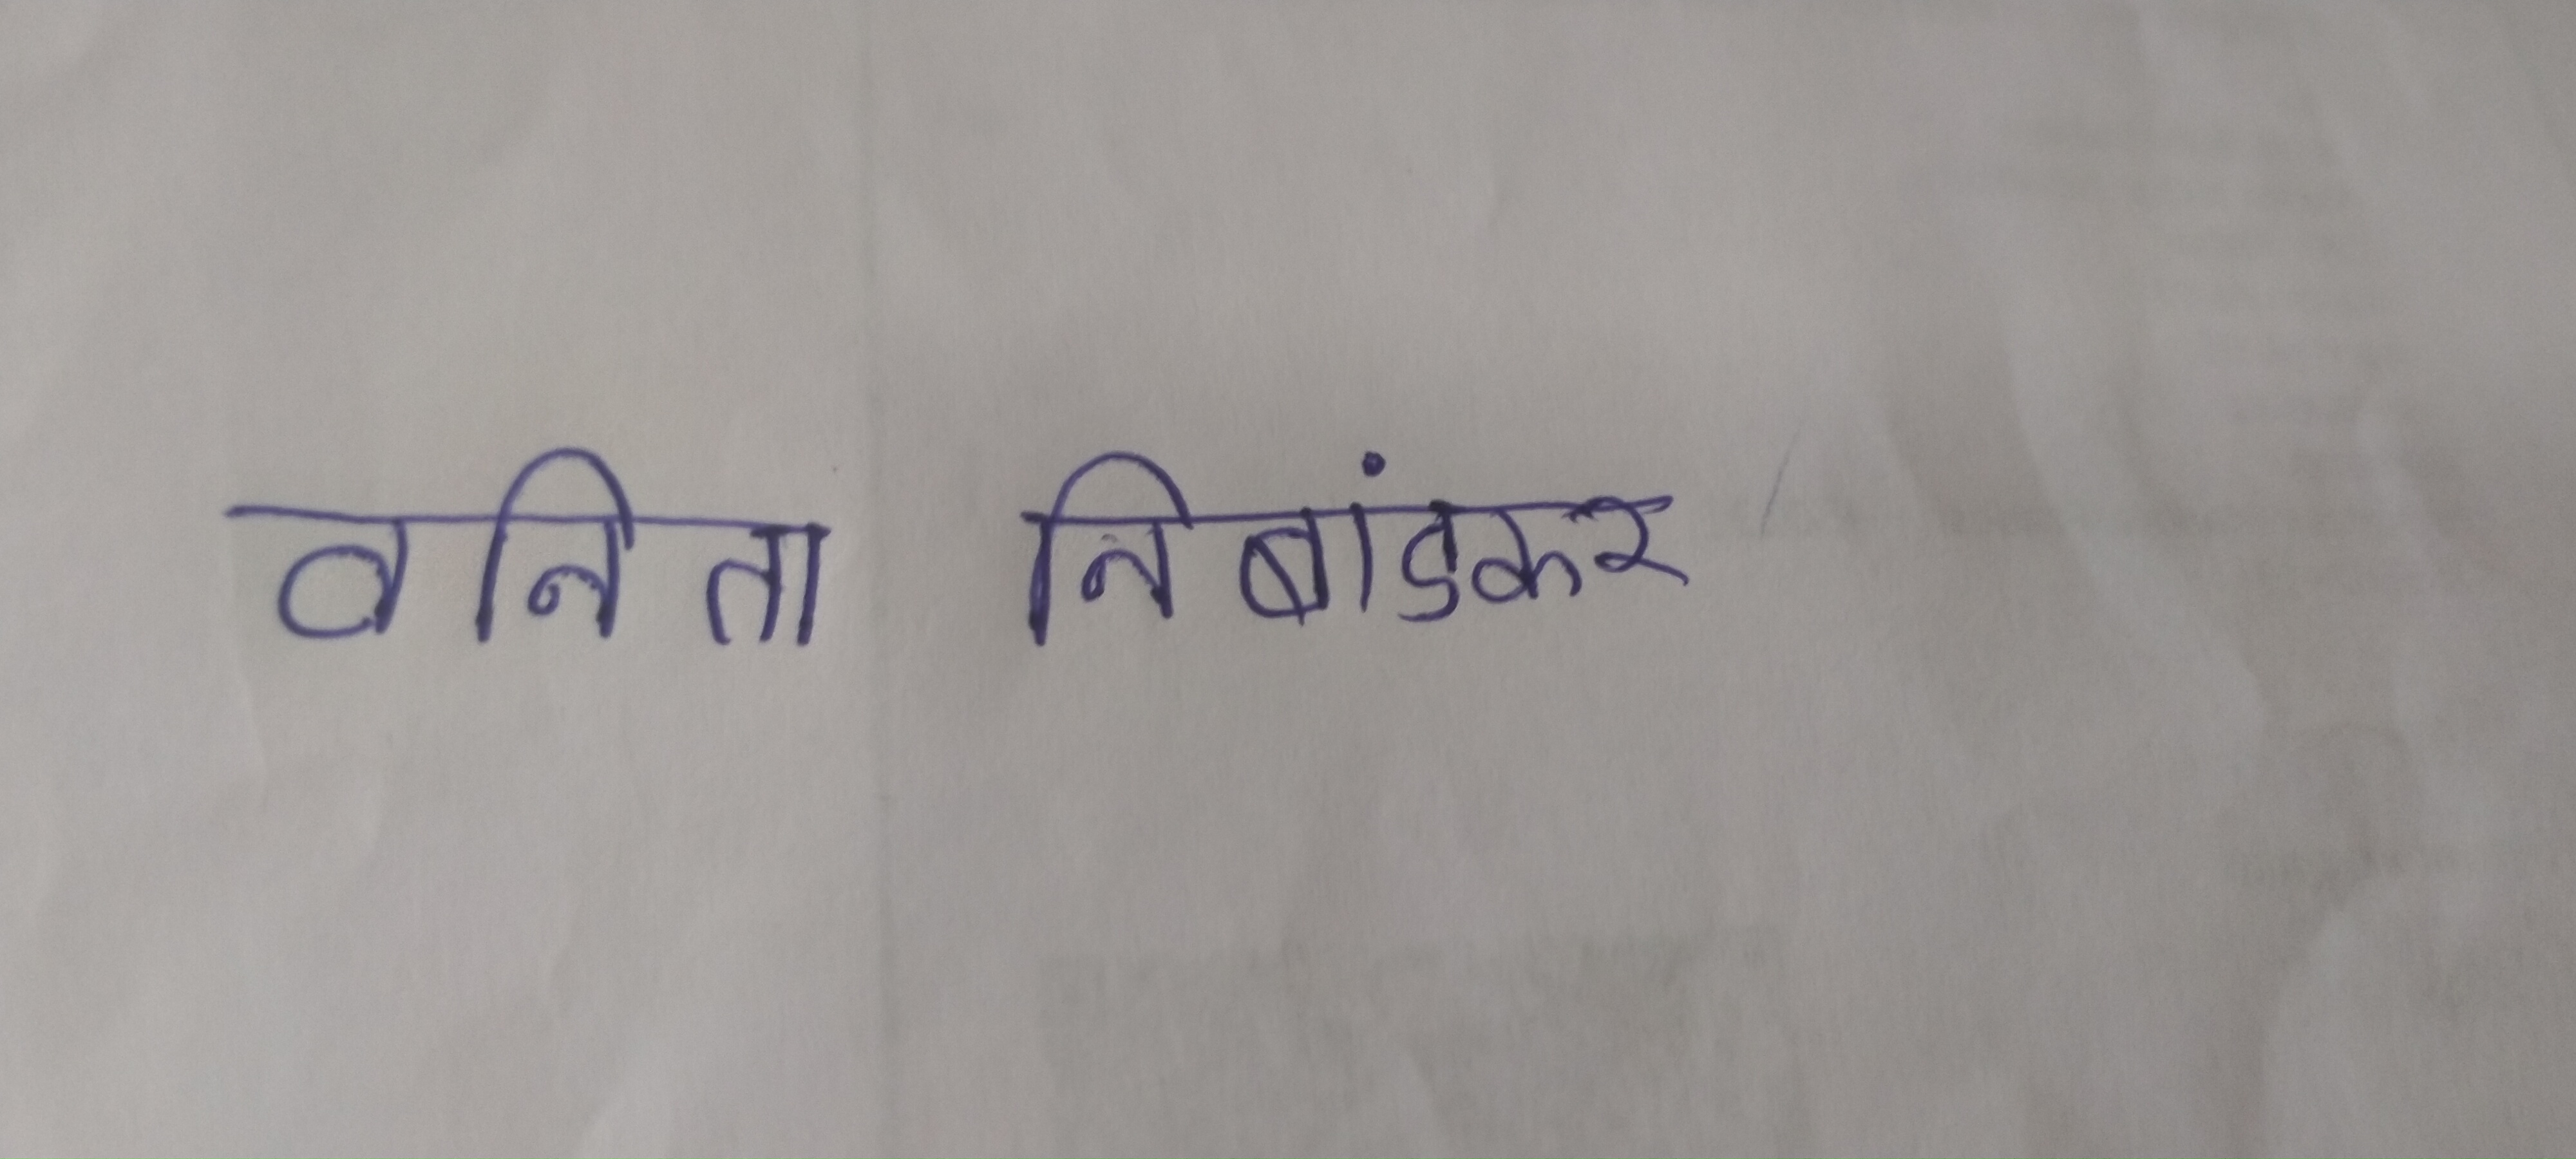 वनिता निबांडकर